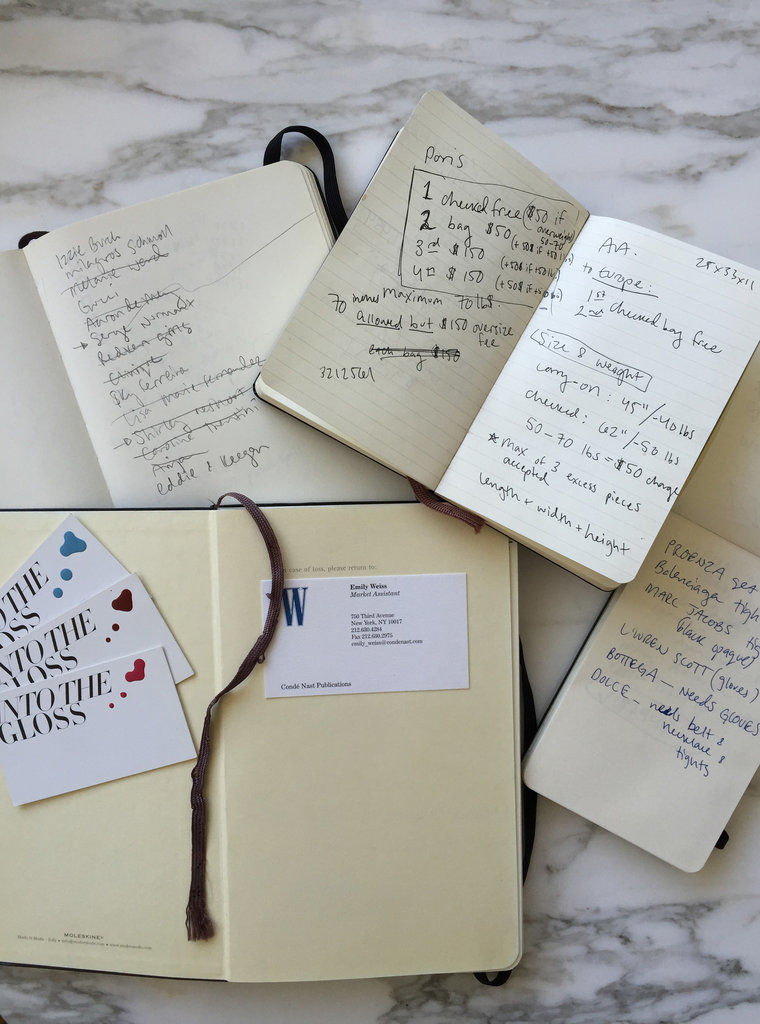 Izzie Burch
milagros Schmoll
melanie ward
Gucci
Aaron de
Serge Normant
Redken girls
Sky Ferreira
Lisa Marie Fernandez
Shirley
Caroline Trentini
eddie + Keegn
Paris
1 checked free ($50 if overweight
50-70
2 bag $50 (+50$ if +50 lbs)
3rd $150 (+50$ if +50 lbs)
4th $150 (+50$ if +50 lb)
70 maximum 70 lbs.
allowed but $150 oversize
fee
each bag $150
3212561
AA.
25x33x11
to Europe:
1st checked bag free
2nd
Size & weight
carry-on: 45"/-40 lbs
checked: 62"/-50 lbs
50-70 lbs = $50 charge
* max of 3 excess pieces
accepted
length + width + height
PROENZA
Balenciaga
MARC JACOBS
black opaque
L'WREN SCOTT (gloves)
BOTTEGA — NEEDS GLOVES
DOLCE — needs belt &
necklace &
tights
INTO THE
GLOSS
INTO THE
GLOSS
INTO THE
GLOSS
MOLESKINE®
In case of loss, please return to:
W
Emily Weiss
Market Assistant
750 Third Avenue
New York, NY 10017
212.630.4284
Fax 212.630.2975
emily_weiss@condenast.com
Condé Nast Publications